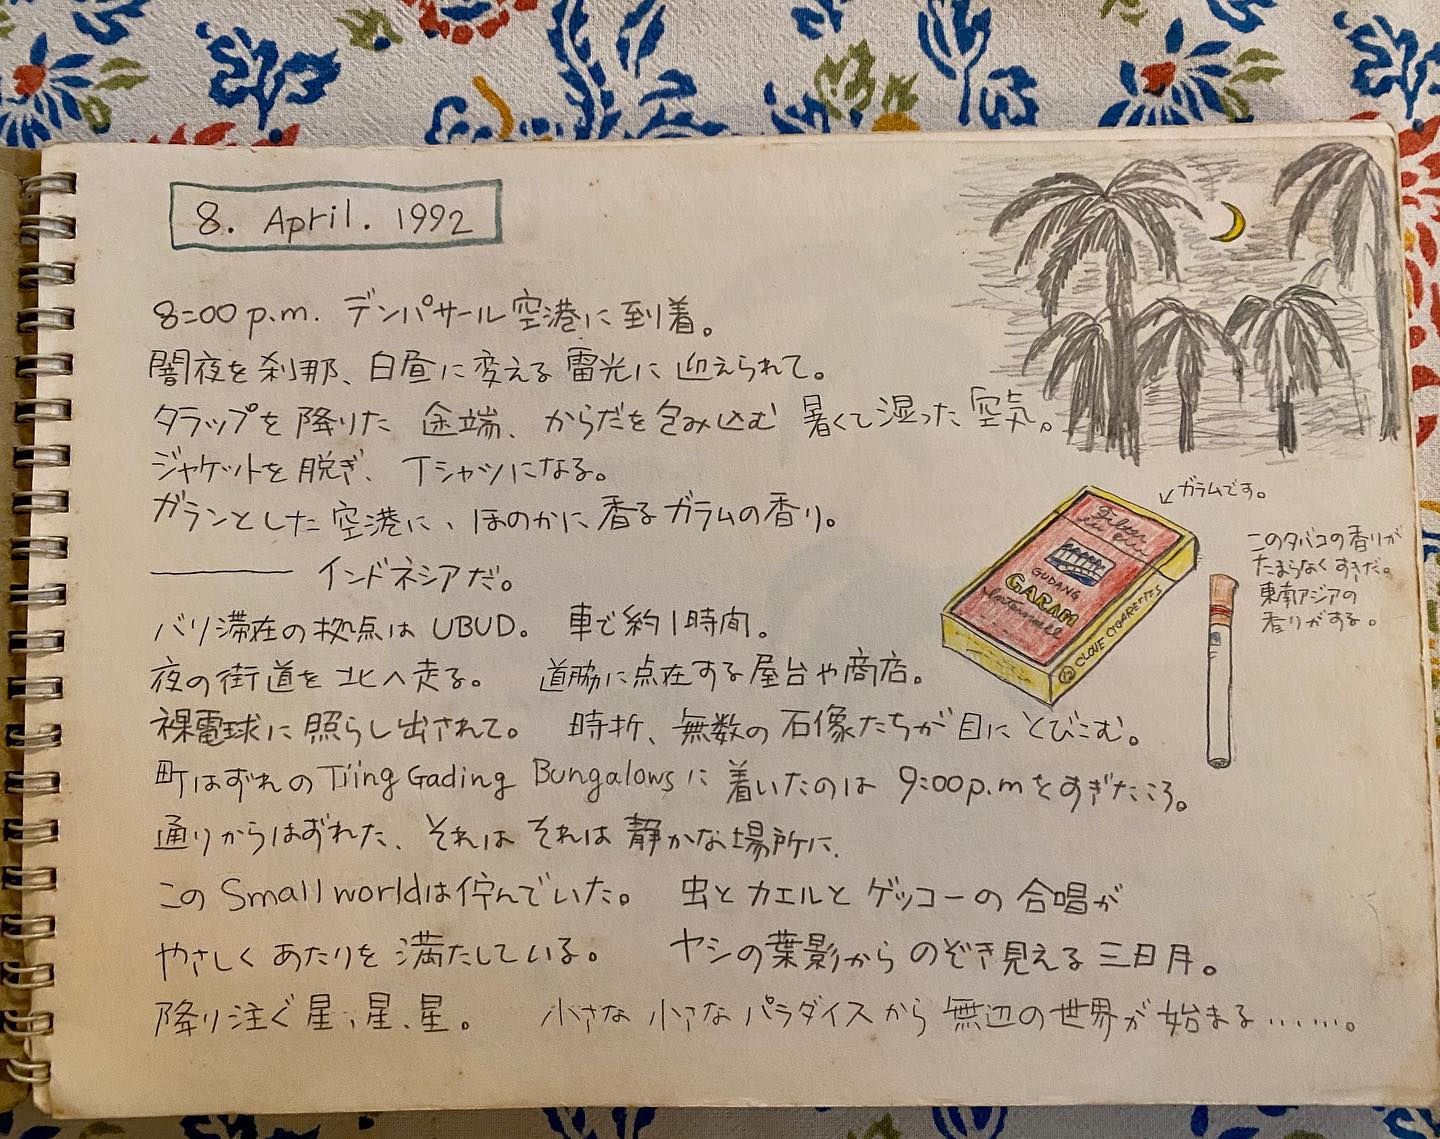 8. April. 1992
8:00 p.m. デンパサール空港に到着。
闇夜を刹那、白昼に変える雷光に迎えられて。
タラップを降りた途端、からだを包み込む暑くて湿った空気。
ジャケットを脱ぎ、Tシャツになる。
ガランとした空港に、ほのかに香るガラムの香り。
――― インドネシアだ。
バリ滞在の拠点はUBUD。 車で約1時間。
夜の街道を北へ走る。 道脇に点在する屋台や商店。
裸電球に照らし出されて。 時折、無数の石像たちが目にとびこむ。
町はずれのTiing Gading Bungalowsに着いたのは9:00p.mをすぎたころ。
通りからはずれた、それはそれは静かな場所に、
このSmall worldは佇んでいた。 虫とカエルとゲッコーの合唱が
やさしくあたりを満たしている。 ヤシの葉影からのぞき見える三日月。
降り注ぐ星、星、星。 小さな小さなパラダイスから無辺の世界が始まる‥‥‥。
↙ガラムです。
Filter
GUDANG
GARAM
International
12 CLOVE CIGARETTES
このタバコの香りが
たまらなくすきだ。
東南アジアの
香りがする。